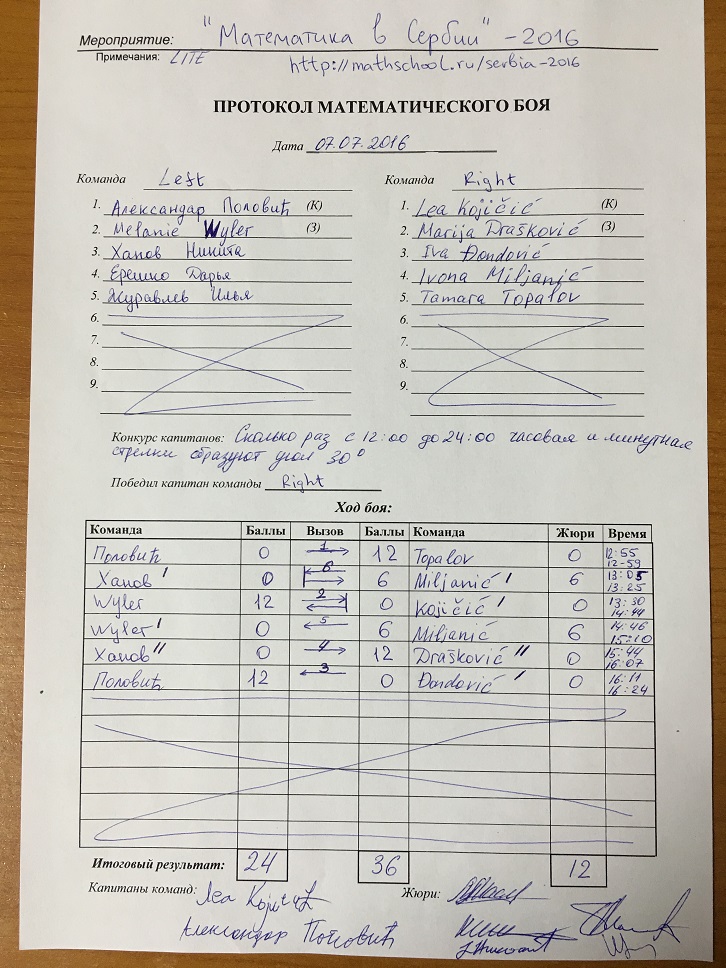 Мероприятие: "Математика в Сербии" - 2016
Примечания: LITE http://mathschool.ru/serbia-2016
ПРОТОКОЛ МАТЕМАТИЧЕСКОГО БОЯ
Дата 07.07.2016
Команда Left Команда Right
1. Александар Половић (К) 1. Lea Kojičić (К)
2. Melanie Wyler (З) 2. Marija Drašković (З)
3. Ханов Никита 3. Iva Đondović
4. Ерешко Дарья 4. Ivona Miljanić
5. Журавлев Илья 5. Tamara Topalov
6. 6.
7. 7.
8. 8.
9. 9.
Конкурс капитанов: Сколько раз с 12:00 до 24:00 часовая и минутная
стрелки образуют угол 30°
Победил капитан команды Right
Ход боя:
Команда Баллы Вызов Баллы Команда Жюри Время
Половић 0 1 12 Topalov 0 12:55 12-59
Ханов ' 0 6 6 Miljanić ' 6 13:05 13:25
Wyler 12 2 0 Kojičić ' 0 13:30 14:44
Wyler ' 0 5 6 Miljanić 6 14:46 15:10
Ханов '' 0 4 12 Drašković '' 0 15:44 16:07
Половић 12 3 0 Đondović ' 0 16:11 16:24
Итоговый результат: 24 36 12
Капитаны команд: Леа Којичић Жюри:
Александар Половић